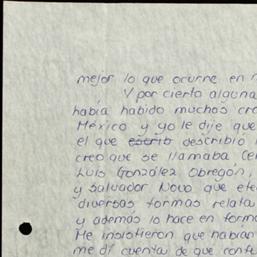 mejor lo que ocurre en
Y por cierto alguna
había habido muchos cro
México y yo le dije que
el que escribió describió
creo que se llamaba
Luis González Obregón,
y Salvador Novo que efe
diversas formas relata
y además lo hace en forma
Me insistieron que habían
me dí cuenta de que conf